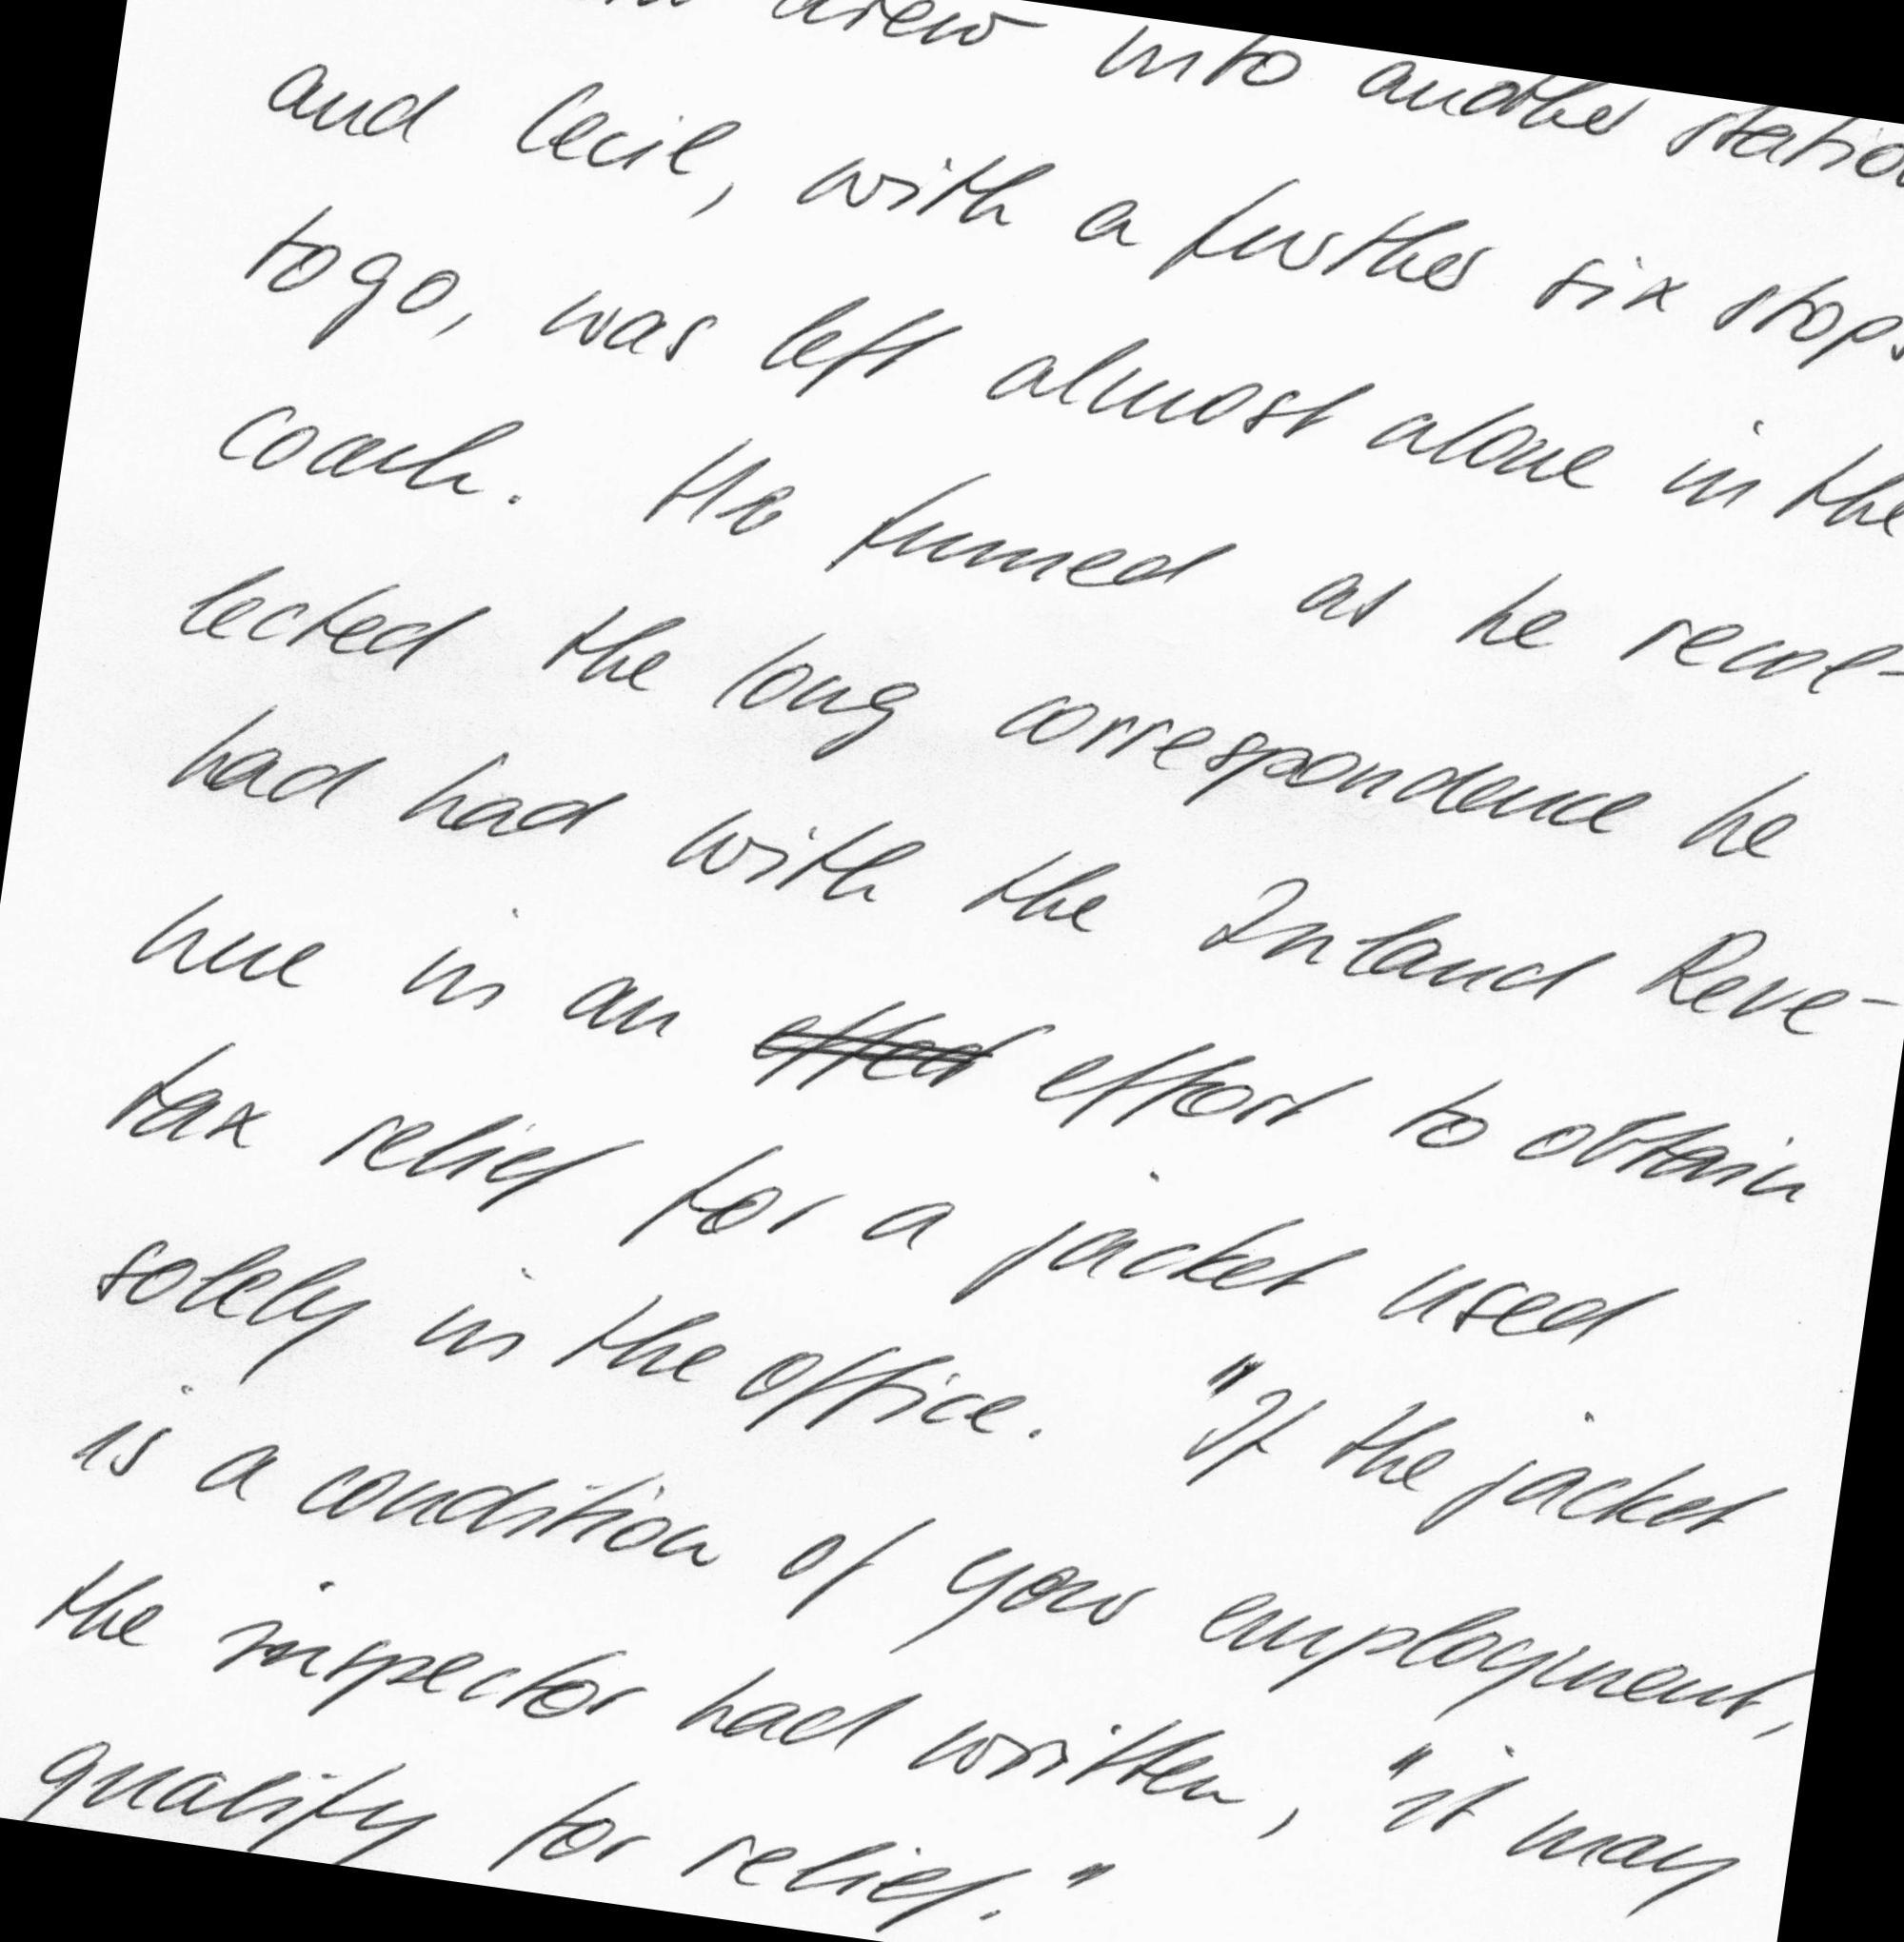 drew into another station
and Cecil, with a further six stops
to go, was left almost alone in the
coach. He fumed as he recol-
lected the long correspondence he
had had with the Inland Reve-
nue in an effort to obtain
tax relief for a jacket used
solely in the office. "If the jacket
is a condition of your employment,
the inspector had written, "it may
qualify for relief."